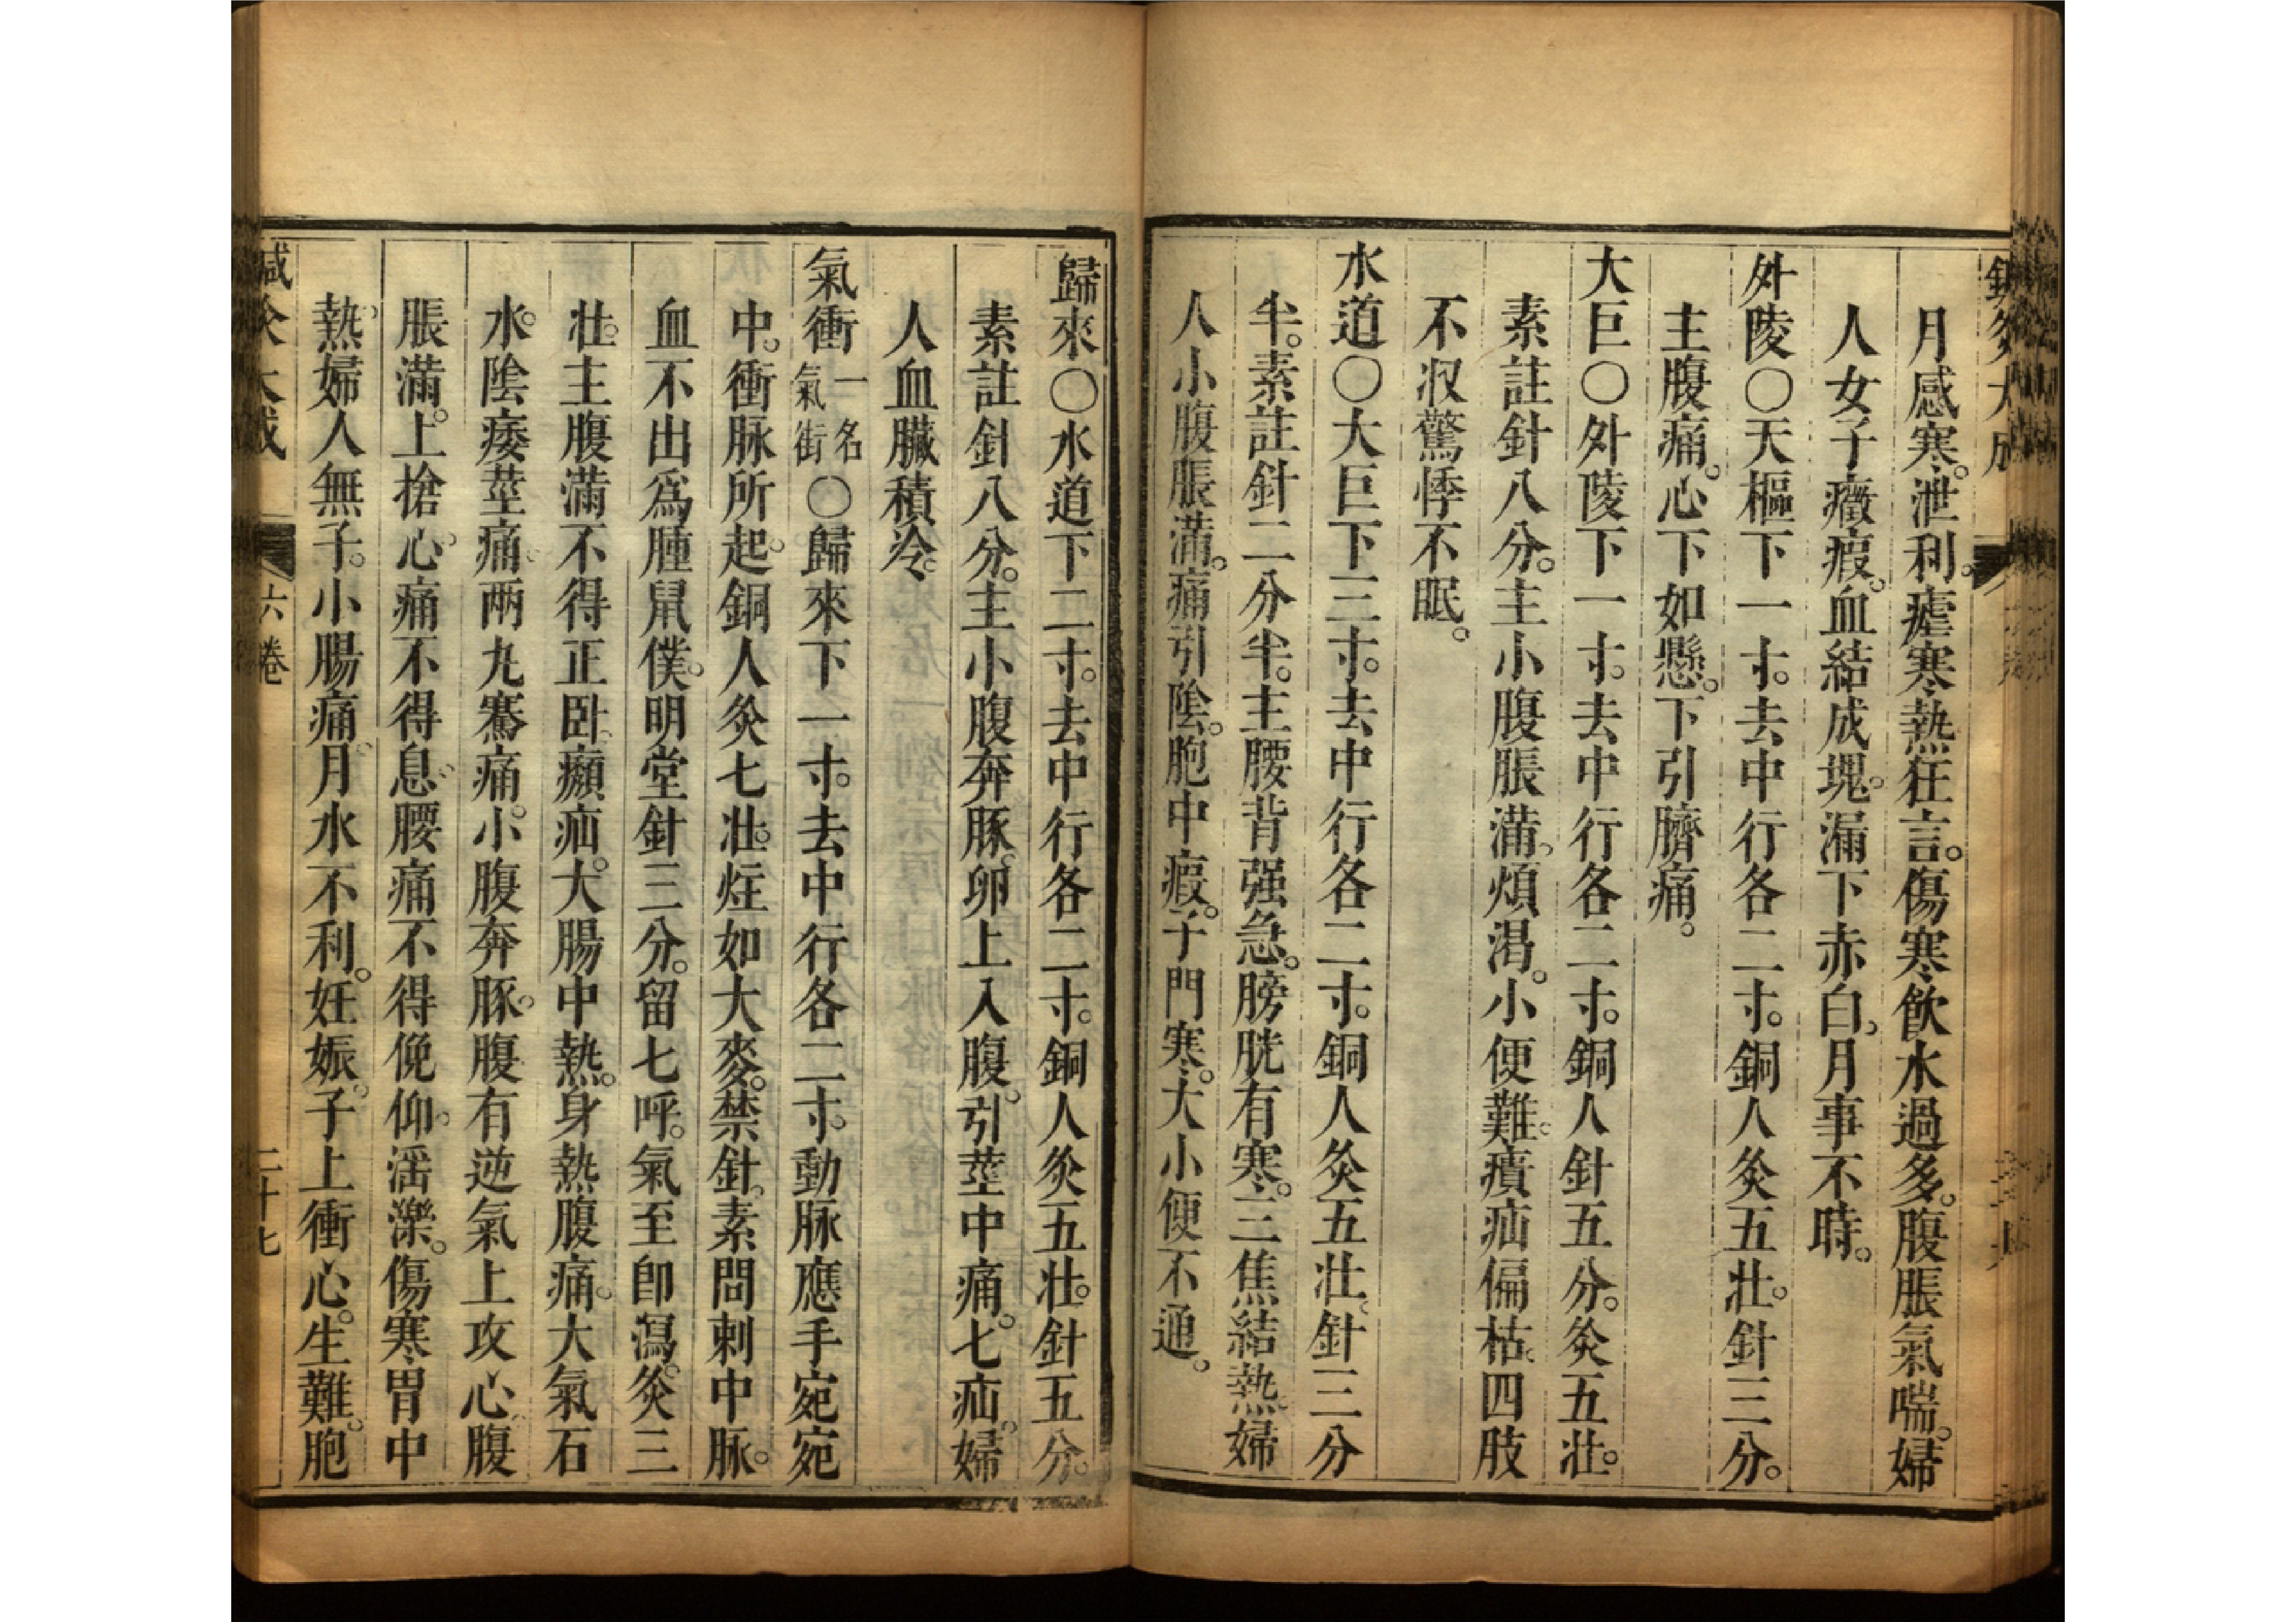 月感寒。泄利。瘧寒熱狂言。傷寒飲水過多。腹脹氣喘。婦
人女子癥瘕。血結成塊。漏下赤白。月事不時。
外陵○天樞下一寸。去中行各二寸。銅人灸五壯。針三分。
主腹痛。心下如懸。下引臍痛。
大巨○外陵下一寸。去中行各二寸。銅人針五分。灸五壯。
素註針八分。主小腹脹滿。煩渴。小便難。㿉疝偏枯。四肢
不收驚悸不眠。
水道○大巨下三寸。去中行各二寸。銅人灸五壯。針三分
半。素註針二分半。主腰背强急。膀胱有寒。三焦結熱。婦
人小腹脹滿。痛引陰。胞中瘕。子門寒。大小便不通。
歸來○水道下二寸。去中行各二寸。銅人灸五壯。針五分。
素註針八分。主小腹奔豚。卵上入腹。引莖中痛。七疝。婦
人血臟積冷。
氣衝一名氣街○歸來下一寸。去中行各二寸。動脉應手宛宛
中。衝脉所起。銅人灸七壯。炷如大麥。禁針。素問刺中脉。
血不出爲腫鼠僕。明堂針三分。留七呼。氣至即瀉。灸三
壯。主腹滿不得正卧。㿗疝。大腸中熱。身熱腹痛。大氣石
水。陰痿莖痛。兩丸騫痛。小腹奔豚。腹有逆氣上攻心。腹
脹滿。上搶心。痛不得息。腰痛不得俛仰。淫濼。傷寒胃中
熱。婦人無子。小腸痛。月水不利。妊娠。子上衝心。生難。胞
六卷 二十七